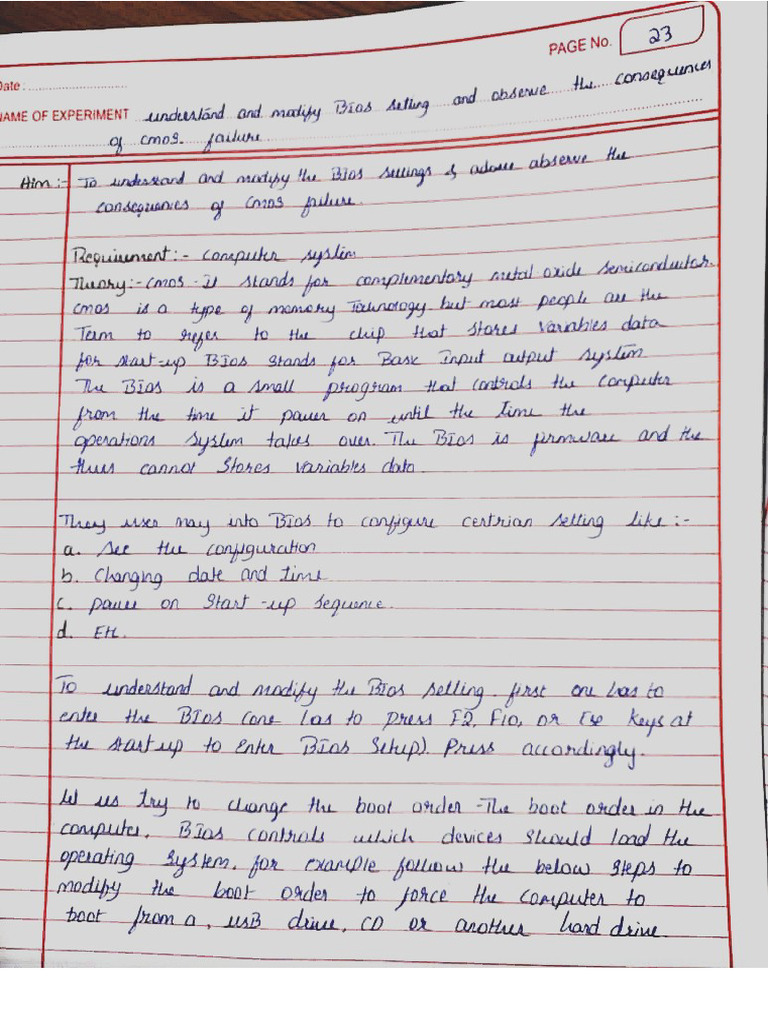 PAGE No. 23
Date :
NAME OF EXPERIMENT understand and modify Bios setting and observe the consequences
of cmos. failure.
Aim :- To understand and modify the Bios settings & observe the
consequencies of cmos failure.
Requirement :- Computer system
Theory :- Cmos - It stands for complementary metal oxide semiconductor.
cmos is a type of memory Technology but most people are the
Team to refer to the chip that stores variables data
for start-up BIos stands for Basic Input output system
The BIos is a small program that controls the computer
from the time it power on until the time the
operations system takes over. The BIos is firmware and the
thus cannot stores variables data.
They user may into BIos to configure certrian setting like :-
a. see the configuration
b. Changing date and time
c. power on Start-up sequence.
d. Etc.
To understand and modify the BIos setting. first one has to
enter the BIos (one has to press F2, F10, or Esc Keys at
the start up to enter BIos Setup). Press accordingly.
let us try to change the boot order - The boot order in the
computer. BIos controls which devices should load the
operating system. for example follow the below steps to
modify the boot order to force the computer to
boot from a, USB drive, CD or another hard drive.